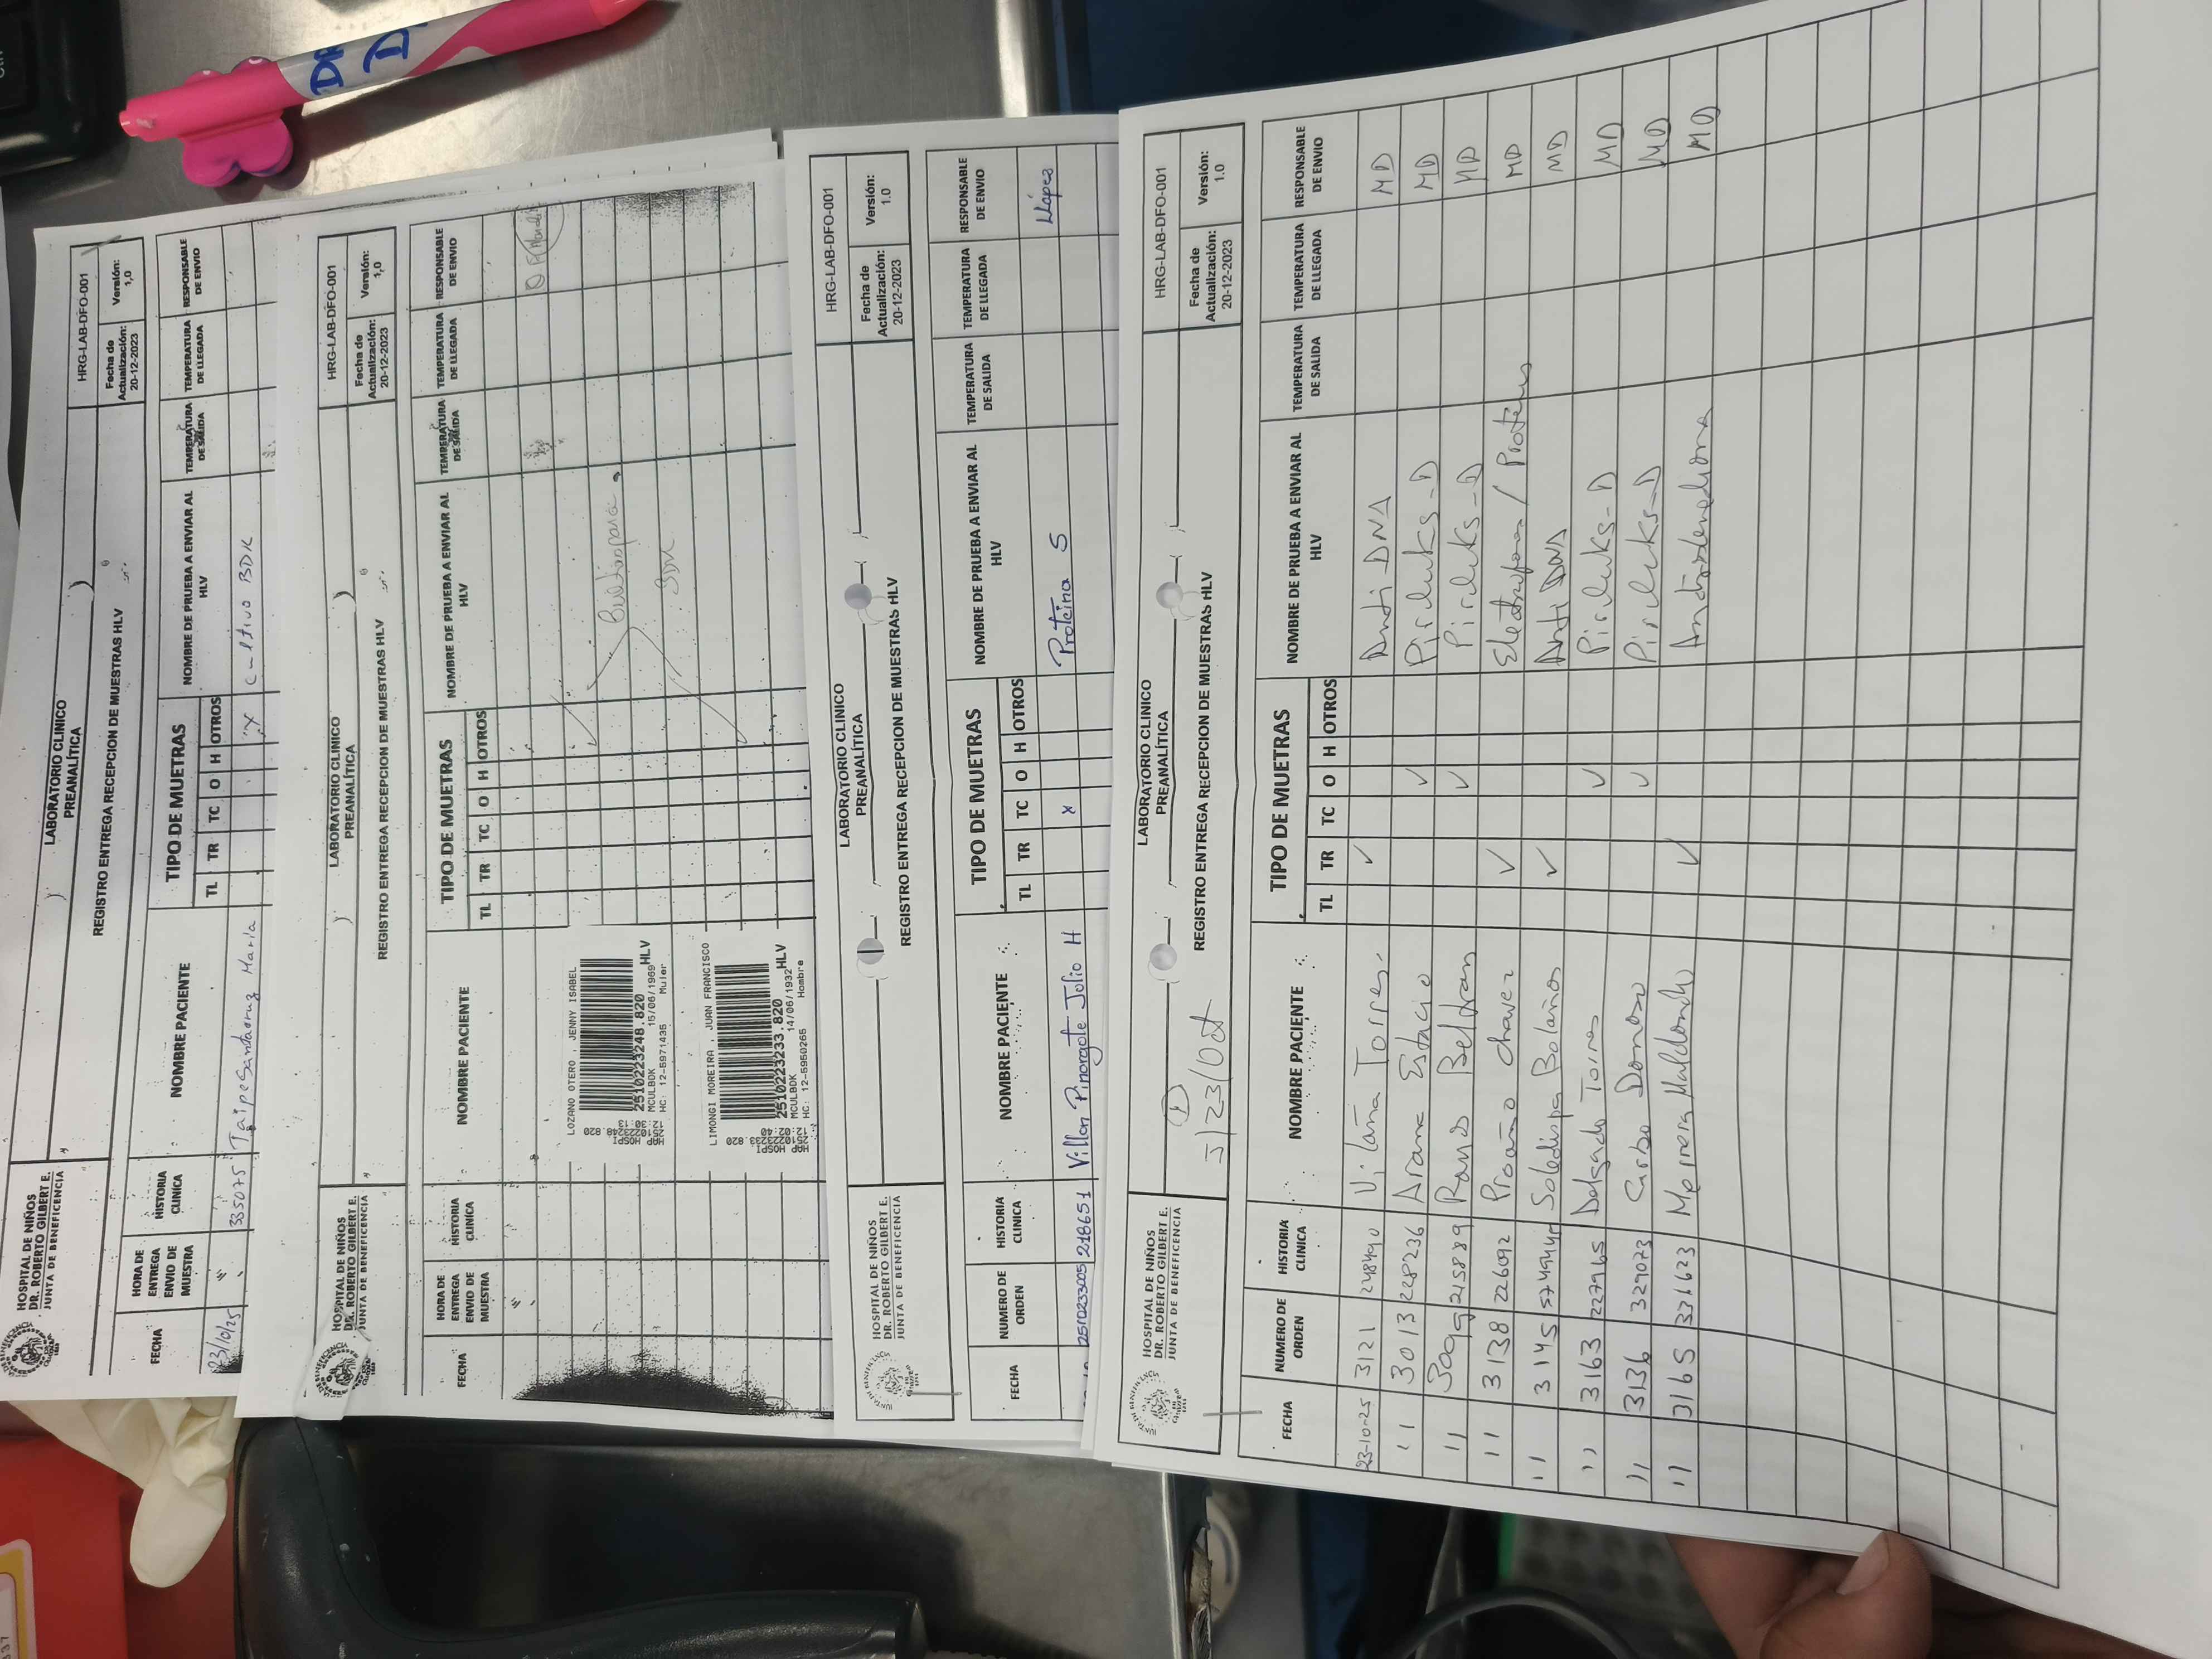 HOSPITAL DE NIÑOS
DR. ROBERTO GILBERT E.
JUNTA DE BENEFICENCIA
LABORATORIO CLINICO
PREANALÍTICA
REGISTRO ENTREGA RECEPCION DE MUESTRAS HLV
HRG-LAB-DFO-001
Fecha de Actualización: 20-12-2023
Versión: 1,0
FECHA
HORA DE ENTREGA ENVIO DE MUESTRA
HISTORIA CLINICA
NOMBRE PACIENTE
TIPO DE MUETRAS
TL TR TC O H OTROS
NOMBRE DE PRUEBA A ENVIAR AL HLV
TEMPERATURA DE SALIDA
TEMPERATURA DE LLEGADA
RESPONSABLE DE ENVIO
23/10/25 " 335075 Taipe Santacruz Maria x cultivo BDK
HOSPITAL DE NIÑOS
DR. ROBERTO GILBERT E.
JUNTA DE BENEFICENCIA
LABORATORIO CLINICO
PREANALÍTICA
REGISTRO ENTREGA RECEPCION DE MUESTRAS HLV
HRG-LAB-DFO-001
Fecha de Actualización: 20-12-2023
Versión: 1,0
FECHA
HORA DE ENTREGA ENVIO DE MUESTRA
HISTORIA CLINICA
NOMBRE PACIENTE
TIPO DE MUETRAS
TL TR TC O H OTROS
NOMBRE DE PRUEBA A ENVIAR AL HLV
TEMPERATURA DE SALIDA
TEMPERATURA DE LLEGADA
RESPONSABLE DE ENVIO
LOZANO OTERO , JENNY ISABEL
2510223248.820 HLV
MCULBDK 15/06/1969
HC: 12-5971435 Mujer
LIMONGI MOREIRA , JUAN FRANCISCO
2510223233.820 HLV
MCULBDK 14/06/1932
HC: 12-5950265 Hombre
HOSPITAL DE NIÑOS
DR. ROBERTO GILBERT E.
JUNTA DE BENEFICENCIA
LABORATORIO CLINICO
PREANALÍTICA
REGISTRO ENTREGA RECEPCION DE MUESTRAS HLV
HRG-LAB-DFO-001
Fecha de Actualización: 20-12-2023
Versión: 1.0
FECHA
NUMERO DE ORDEN
HISTORIA CLINICA
NOMBRE PACIENTE
TIPO DE MUETRAS
TL TR TC O H OTROS
NOMBRE DE PRUEBA A ENVIAR AL HLV
TEMPERATURA DE SALIDA
TEMPERATURA DE LLEGADA
RESPONSABLE DE ENVIO
2510233005 218651 Villon Pinargote Julio H x Proteina S LLópez
HOSPITAL DE NIÑOS
DR. ROBERTO GILBERT E.
JUNTA DE BENEFICENCIA
LABORATORIO CLINICO
PREANALÍTICA
REGISTRO ENTREGA RECEPCION DE MUESTRAS HLV
HRG-LAB-DFO-001
Fecha de Actualización: 20-12-2023
Versión: 1.0
①
J/23/Oct
FECHA
NUMERO DE ORDEN
HISTORIA CLINICA
NOMBRE PACIENTE
TIPO DE MUETRAS
TL TR TC O H OTROS
NOMBRE DE PRUEBA A ENVIAR AL HLV
TEMPERATURA DE SALIDA
TEMPERATURA DE LLEGADA
RESPONSABLE DE ENVIO
23-10-25 3121 248490 Vilaña Torres. ✓ Anti DNA MD
" 3013 228236 Arana Estacio ✓ Pirilinks-D MD
" 215889 Ramos Beltran ✓ Pirilinks-D MD
" 3138 226092 Proaño Chavez ✓ Electroforesis / Proteinas MD
" 3145 Soledispa Bolaños ✓ Anti DNA MD
" 3163 227965 Delgado Torres ✓ Pirilinks-D MD
" 3136 329073 Carbo Donoso ✓ Pirilinks-D MD
" 3165 331623 Morera Maldonado ✓ Androstenediona MD